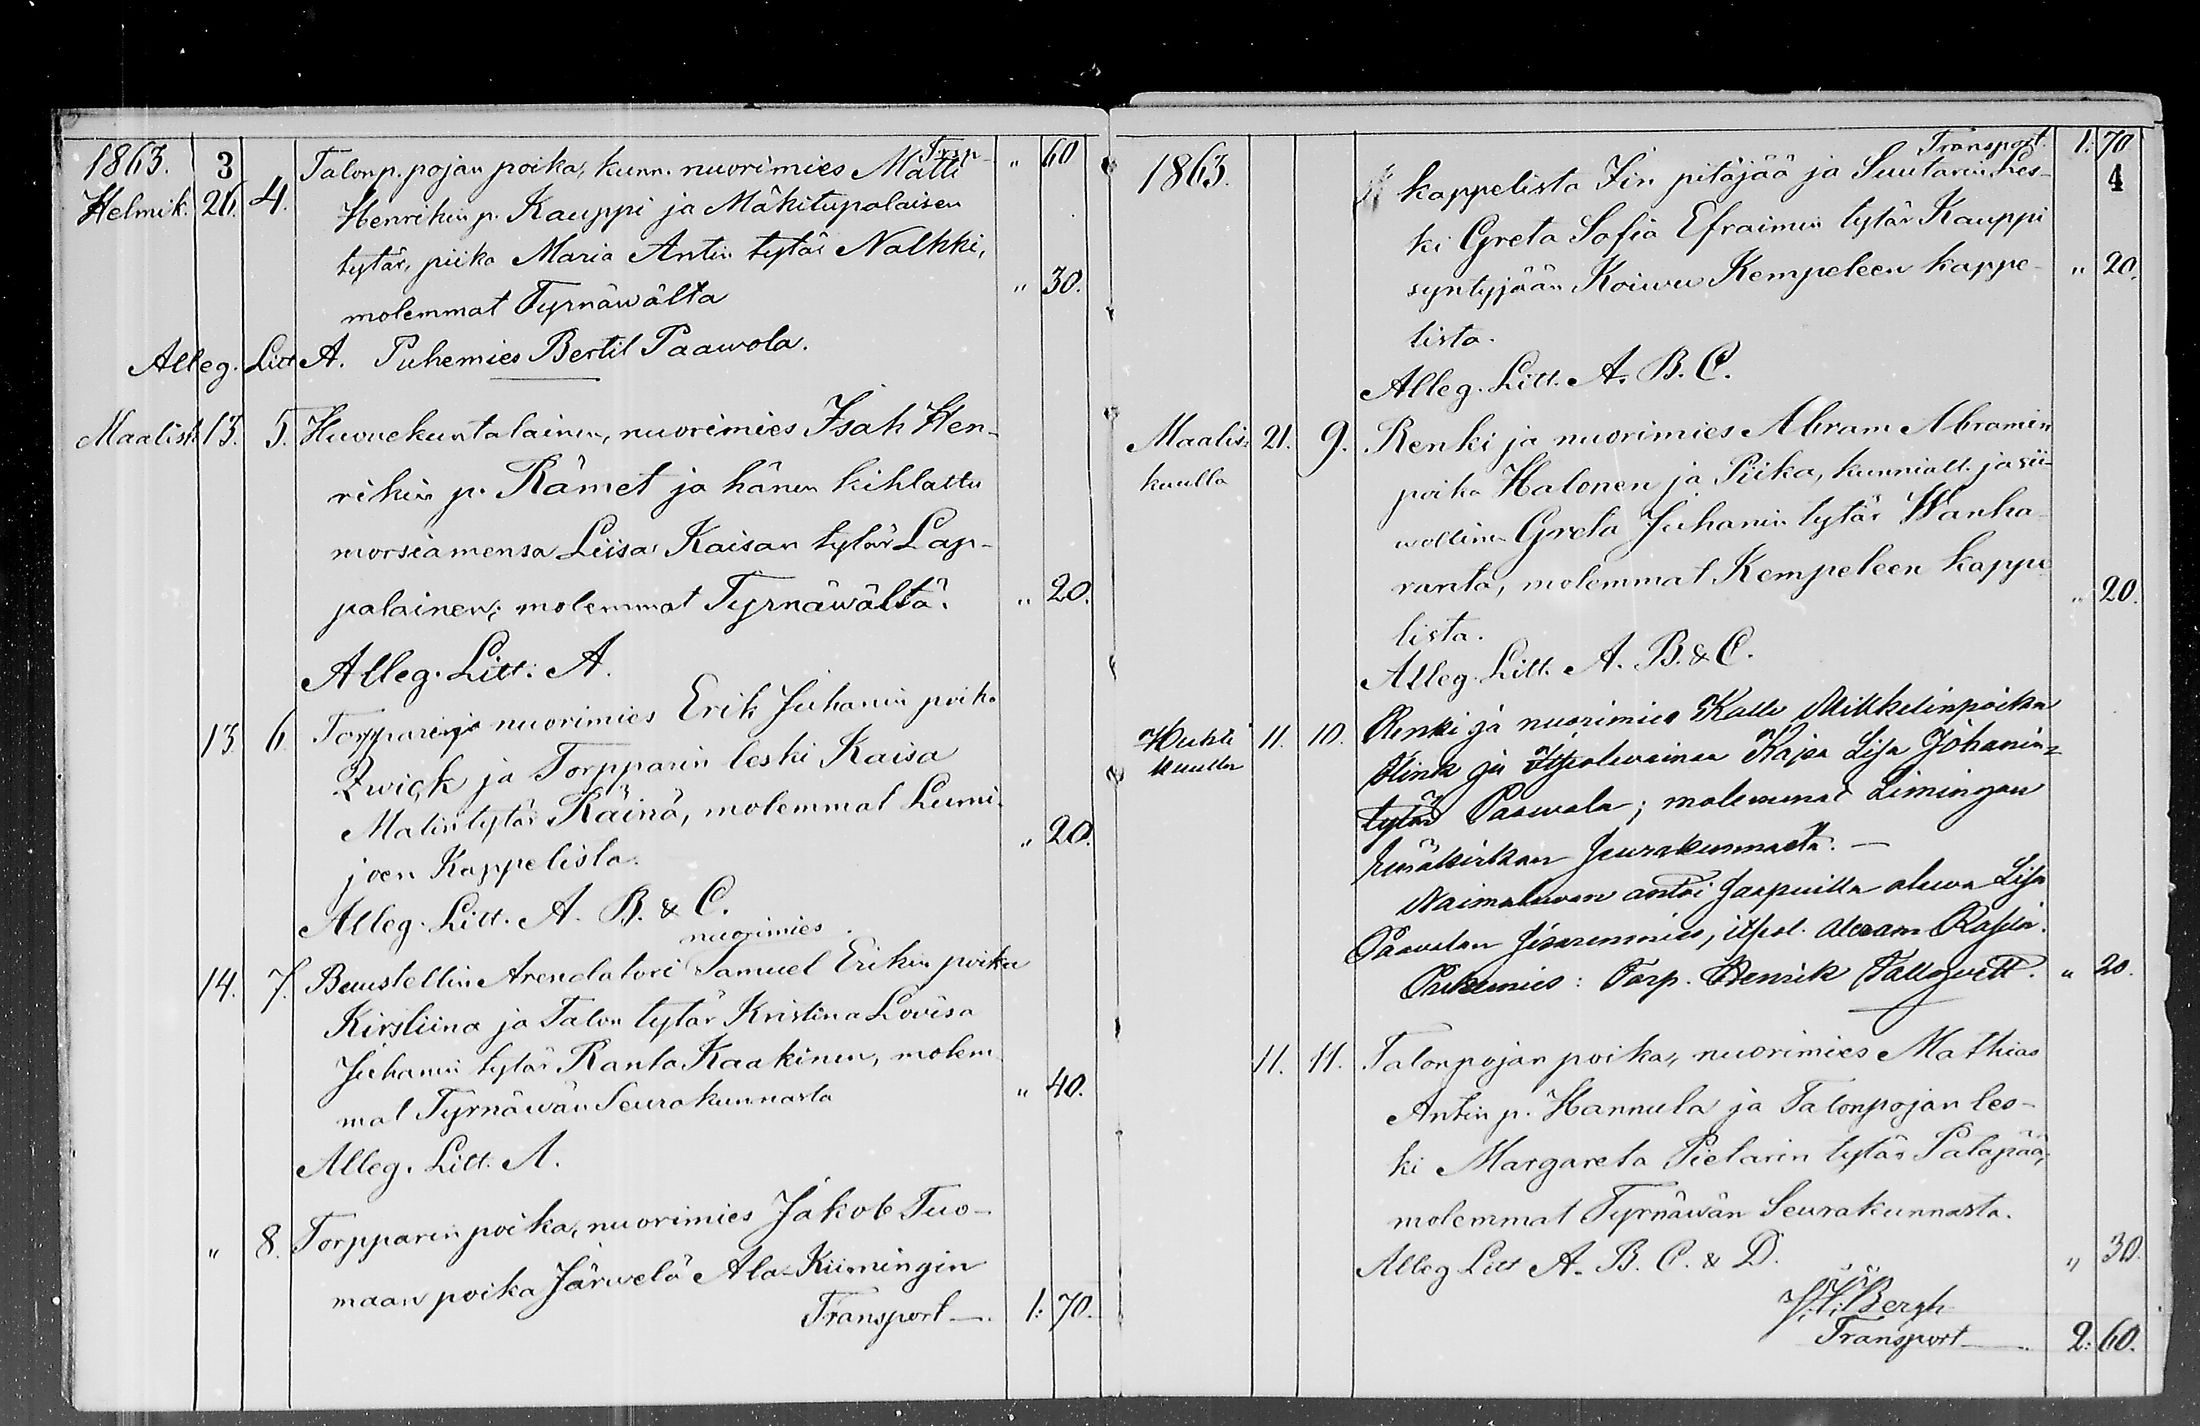 1863. 3 Trsp. " 60
Helmik. 26. 4. Talonp. pojan poika, kunn. nuorimies Matti
Henrikin p. Kauppi ja Mäkitupalaisen
tytär, piika Maria Antin tytär Nalkki,
molemmat Tyrnäwältä " 30.
Alleg. Litt A. Puhemies Bertil Paawola.
Maalisk 13. 5. Huonekuntalainen, nuorimies Isak Hen-
rikin p. Rämet ja hänen kihlattu
morsiamensa Liisa Kaisan tytär Lap-
palainen; molemmat Tyrnäwältä. " 20.
Alleg. Litt. A.
13 6 Torppari ja nuorimies Erik Juhanin poika
Zwick ja Torpparin leski Kaisa
Matin tytär Räinä, molemmat Lumi-
joen Kappelista. " 20.
Alleg. Litt. A. B. & C.
nuorimies
14. 7. Buustellin Arendatori Samuel Erikin poika
Kirstiina ja Talon tytär Kristina Lovisa
Juhanin tytär Ranta Kaakinen, molem
mat Tyrnäwän Seurakunnasta " 40.
Alleg. Litt. A.
" 8. Torpparin poika, nuorimies Jakob Tuo-
maan poika Järwelä Ala-Kiimingin
Transport 1: 70.
1863. Transport. 1: 70
4
kappelista Iin pitäjää ja Suutarin Les-
ki Greta Sofia Efraimin tytär Kauppi
syntyjään Koiwu Kempeleen kappe- " 20.
lista.
Alleg. Litt. A. B. C.
Maalis- 21. 9. Renki ja nuorimies Abram Abramin
kuulla poika Halonen ja Piika, kunniall. ja sii-
wollinen Greta Juhanin tytär Wanha-
ranta, molemmat Kempeleen kappe " 20.
lista.
Alleg. Litt. A. B. & C.
Huhti 11. 10. Renki ja nuorimies Kalle Mikkelinpoika
kuulla Klink ja Itsolewainen Kajsa Lisa Johanin-
tytär Paawola; molemmat Limingan
Emäkirkon seurakunnasta. —
Naimaluwan antoi saapuilla olewa Lisa
Paawolan sisarenmies, itsol. Abram
Puhemies: Torp. Henrik Tallqvist. " 20.
11. 11. Talonpojan poika, nuorimies Mathias
Antin p. Hannula ja Talonpojan les-
ki Margareta Pietarin tytär Salapää,
molemmat Tyrnäwän Seurakunnasta.
Alleg Litt A. B. C. & D. " 30.
Bergh
Transport 2: 60.